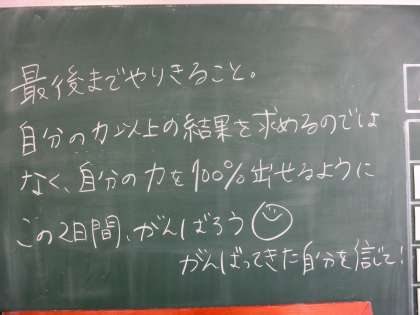 最後までやりきること。
自分の力以上の結果を求めるのでは
なく、自分の力を100%出せるように
この2日間、がんばろう
がんばってきた自分を信じて!